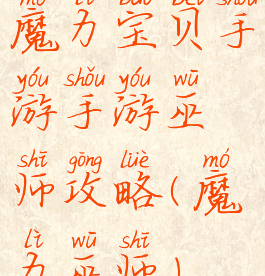 mó lì bǎo bèi shǒu
魔力宝贝手
yóu shǒu yóu wū
游手游巫
shī gōng lüè mó
师攻略(魔
lì wū shī
力巫师)